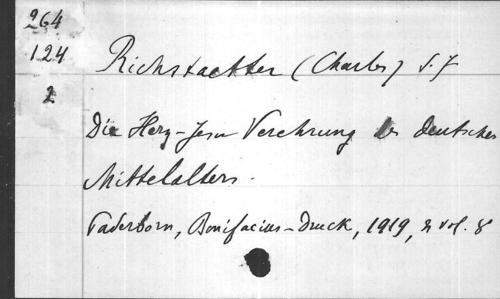 264
124
2
Richstaetter (Charles) S. J
Die Herz-Jesu Verehrung des deutschen
Mittelalters.
Paderborn, Bonifacius-Druck, 1919, 2 vol. 8